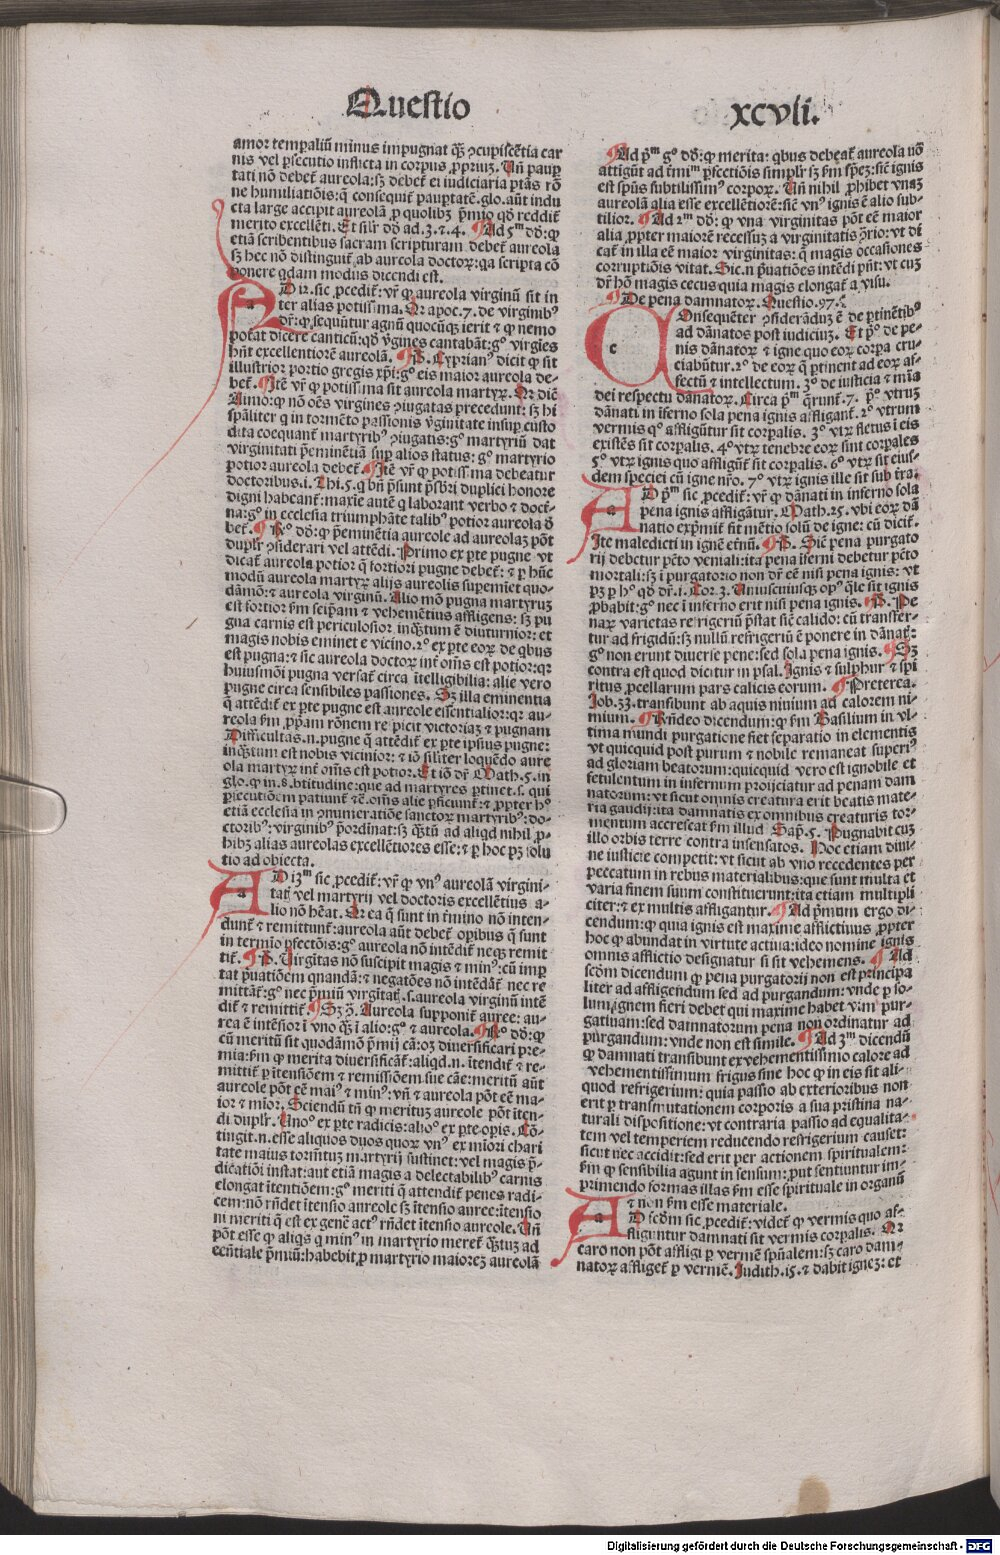 Questio
xcvii.
amor tempaliū minus impugnat q̃ꝫ ꝯcupiscētia car
nis vel ꝑsecutio inflicta in corpus ꝓpriuꝫ. Uñ paup
tati nō debet᷑ aureola: sꝫ debet᷑ ei iudiciaria ptãs rõ
ne humiliatiõis: q̃ consequit᷑ paupertatē. glo. aūt indu
cta large accipit aureolā ꝓ quolibꝫ p̃mio qḋ reddit᷑
merito excellēti. Et sil᷑r dḋ ad .3. ⁊ .4. Ad 5ᵐ dḋ: ꝙ
etiā scribentibus sacram scripturam debet᷑ aureola
sꝫ hec nō distinguit᷑ ab aureola doctorꝝ: qa scripta cõ
ponere qdam modus dicendi est.
AD 12. sic ꝓcedit᷑: vr̃ ꝙ aureola virginū sit in
ter alias potissima. Qr apoc. 7. de virginibꝰ
dr̃: ꝙ sequūtur agnū quocūqꝫ ierit ⁊ ꝙ nemo
poterat dicere canticū: qḋ v̓gines cantabāt: gͦ virgies
hñt excellentiorē aureolā. P. Cyprianꝰ dicit ꝙ sit
illustrior portio gregis xp̃i: gͦ eis maior aureola de-
bet᷑. Itē vr̃ ꝙ potissima sit aureola martyrꝝ. Qr diē
Aimo: ꝙ nō oēs virgines ꝯiugatas precedunt: sꝫ hi
sp̄aliter q in tormēto passionis v̓ginitate insuꝑ custo
dita coequant᷑ martyribꝰ ꝯiugatis: gͦ martyriū dat
virginitati p̄eminētiā suꝑ alios status: gͦ martyrio
potior aureola debet᷑. Itē vr̃ ꝙ potissima debeatur
doctoribus .i. Thi. 5. q bñ p̄sunt p̄sbr̃i duplici honore
digni habeant᷑: maxīe autē q laborant verbo ⁊ doct̃-
na: gͦ in ecclesia triumphāte talibꝰ potior aureola ḋ
bet᷑. Rͦ dḋ: ꝙ p̄eminētia aureole ad aureolaꝫ põt
dupl᷑r ꝯsiderari vel attēdi. Primo ex pte pugne vt
dicat᷑ aureola potior q̃ fortiori pugne debet᷑: ⁊ ꝑ hūc
modū aureola martyrꝝ alijs aureolis supemīet quo-
dāmõ: ⁊ aureola virginū. Alio mõ pugna martyruꝫ
est fortior ẜm seip̄am ⁊ vehemētius affligens: sꝫ pu
gna carnis est periculosior, inqꝫtum ē diuturnior: et
magis nobis eminet e vicino. 2ͦ ex pte eorꝝ de qbus
est pugna: ⁊ sic aureola doctorꝝ int᷑ oēs est potior: qr
huiusmõi pugna versat᷑ circa ītelligibilia: alie vero
pugne circa sensibiles passiones. Sꝫ illa eminentia
q̃ attēdit᷑ ex pte pugne est aureole essentialior: qr au-
reola ẜm ꝓpriam rõnem respicit victoriaꝫ ⁊ pugnam
Difficultas .n. pugne q̃ attēdit᷑ ex pte ipsius pugne:
inqꝫtum est nobis vicinior: ⁊ iõ sil᷑iter loquēdo aure
ola martyrꝝ int᷑ oēs est potior. Et iõ dr̃ Math. 5. in
glo. ꝙ in .8. btitudine: que ad martyres ꝑtinet .s. qui
ꝑsecutiōem patiunt᷑ ⁊ē. oēs alie ꝑficiunt᷑: ⁊ ꝓpter hͦ
etiā ecclesia in ꝯnumeratiōe sanctorꝝ martyribꝰ: do-
ctoribꝰ: virginibꝰ p̄ordīnat: sꝫ q̃tū ad aliqd nihil ꝓ-
hibꝫ alias aureolas excellētiores esse: ⁊ ꝑ hoc pꝫ solu
tio ad obiecta.
AD 13ᵐ sic ꝓcedit᷑: vr̃ ꝙ vnꝰ aureolā virgini-
tatꝭ vel martyrij vel doctoris excellētius a-
lio nō hēat. Qr ea q̃ sunt in t̃mino nō inten-
dunt᷑ ⁊ remittunt᷑: aureola aūt debet᷑ oꝑibus q̃ sunt
in termīo ꝑfectõis: gͦ aureola nō intēdit᷑ neqꝫ remit
tit᷑. P. Virgītas nō suscipit magis ⁊ minꝰ: cū impͬ
tat p̄uatiōem quandā: ⁊ negatões nō intēdāt᷑ nec re
mittāt᷑: gͦ nec p̄miū virgītatꝭ .s. aureola virginū intē
dit᷑ ⁊ remittit᷑. Sꝫ ꝯ. Aureola supponit᷑ auree: au-
rea ē intēsior ī vno q̃ꝫ ī alio: gͦ ⁊ aureola. Rͦ dḋ: ꝙ
cū meritū sit quodāmõ p̄mij cā: oꝫ diuersificari pre-
mia: ẜm ꝙ merita diuersificāt᷑: aliqd .n. ītendit᷑ ⁊ re-
mittit᷑ ꝑ ītensiōem ⁊ remissiōem sue cāe: meritū aūt
aureole põt eē maiꝰ ⁊ minꝰ: vñ ⁊ aureola põt eē ma-
ior ⁊ mīor. Sciendū tñ ꝙ meritum aureole põt īten-
di dupl᷑r. Unoͦ ex pte radicis: alioͦ ex pte oꝑis. Cõ-
tingit .n. esse aliquos duos quorꝝ vnꝰ ex mīori chari
tate maius tormētuꝫ martyrij sustinet: vel magis p̄-
dicatiõi instat: aut etiā magis a delectabilibꝰ carnis
elongat ītentiōem: gͦ meriti q̃ attendit᷑ penes radi-
cem: nō rñdet ītensio aureole sꝫ ītensio auree: ītensio
ni meriti q̃ est ex genē actꝰ rñdet ītensio aureole. Uñ
põt esse ꝙ aliqs q̃ minꝰ in martyrio meret᷑ q̃ꝫtuꝫ ad
eēntiale p̄miū: habebit ꝓ martyrio maioreꝫ aureolā
Ad pᵐ gͦ dḋ: ꝙ merita: qbus debeāt᷑ aureola nō
attigūt ad t̃miᵐ ꝑfectiōis simpl᷑r sꝫ ẜm sp̄eꝫ: sic ignis
est sp̄ūs subtilissimꝰ corpoꝝ. Uñ nihil ꝓhibet vnaꝫ
aureolā alia esse excellētiorē: sic vnꝰ ignis ē alio sub-
tilior. Ad 2ᵐ dḋ: ꝙ vna virginitas põt eē maior
alia ꝓpter maiorē recessuꝫ a virginitatis ꝯrio: vt di
cat᷑ in illa eē maior virginitas: q̃ magis occasiones
corruptiōis vitat. Sic .n. p̄uatiões intēdi pñt: vt cuꝫ
dr̃ hõ magis cecus quia magis elongat᷑ a visu.
De pena damnatorꝝ. Questio .97.
COnsequēter ꝯsiderāduꝫ ē de ꝑtinētibꝰ
ad dānatos post iudiciuꝫ. Et pͦ. de pe-
nis dānatorꝝ ⁊ igne quo eorꝝ corꝑa cru
ciabūtur. 2ͦ de eorꝝ q̃ ꝑtinent ad eorꝝ af-
fectū ⁊ intellectum. 3ͦ de iusticia ⁊ mīa
dei respectu dānatorꝝ. Circa pᵐ q̃runt᷑ .7. pͦ vtruꝫ
dānati in īferno sola pena ignis affligant᷑. 2ͦ vtrum
vermis qͦ affligūtur sit corꝑalis. 3ͦ vtꝝ fletus ī eis
existēs sit corꝑalis. 4ͦ vtꝝ tenebre eorꝝ sint corꝑales
5ͦ vtꝝ ignis quo affligūt᷑ sit corꝑalis. 6ͦ vtꝝ sit eius-
dem speciei cū igne nr̃o. 7ͦ vtꝝ ignis ille sit sub t̃ra.
AD pᵐ sic ꝓcedit᷑: vr̃ ꝙ dānati in inferno sola
pena ignis affligātur. Math. 25. vbi eorꝝ dā
natio exp̄mit᷑ fit mētio solū de igne: cū dicit᷑.
Ite maledicti in ignē et̃nū. P. Sic pena purgato
rij debetur pctō veniali: ita pena īferni debetur pctō
mortali: sꝫ ī purgatorio non dr̃ eē nisi pena ignis: vt
pꝫ ꝑ hͦ qḋ dr̃ .i. Cor. 3. Uniuscuiusqꝫ opꝰ q̃le sit ignis
ꝓbabit: gͦ nec ī inferno erit nisi pena ignis. P. Pe
narꝝ varietas refrigeriū p̄stat sic calido: cū transfer-
tur ad frigidū: sꝫ nullū refrigeriū ē ponere in dānatꝭ:
gͦ non erunt diuerse pene: sed sola pena ignis. Sꝫ
contra est quod dicitur in psal. Ignis ⁊ sulphur ⁊ spi
ritus ꝓcellarum pars calicis eorum. Preterea.
Job. 33. transibunt ab aquis niuium ad calorem ni-
mium. Rñdeo dicendum: ꝙ ẜm Basilium in vl-
tima mundi purgatione fiet separatio in elementis
vt quicquid post purum ⁊ nobile remaneat superiꝰ
ad gloriam beatorum: quicquid vero est ignobile et
fetulentum in infernum proijciatur ad penam dam
natorum: vt sicut omnis creatura erit beatis mate-
ria gaudij: ita damnatis ex omnibus creaturis tor-
mentum accrescat ẜm illud Sap. 5. Pugnabit cuꝫ
illo orbis terre contra insensatos. Hoc etiam diui-
ne iusticie competit: vt sicut ab vno recedentes per
peccatum in rebus materialibus: que sunt multa et
varia finem suum constituerunt: ita etiam multipli
citer: ⁊ ex multis affligantur. Ad p̄mum ergo di-
cendum: ꝙ quia ignis est maxime afflictiuus ꝓpter
hoc ꝙ abundat in virtute actiua: ideo nomine ignis
omnis afflictio designatur si sit vehemens. Ad
scḋm dicendum ꝙ pena purgatorij non est principa
liter ad affligendum sed ad purgandum: vnde ꝑ so-
lum ignem fieri debet qui maxime habet vim pur-
gatiuam: sed damnatorum pena non ordinatur ad
purgandum: vnde non est simile. Ad 3ᵐ dicendū
ꝙ damnati transibunt ex vehementissimo calore ad
vehementissimum frigus sine hoc ꝙ in eis sit ali-
quod refrigerium: quia passio ab exterioribus non
erit ꝑ transmutationem corporis a sua pristina na-
turali dispositione: vt contraria passio ad equalita-
tem vel temperiem reducendo refrigerium causet:
sicut nec accidit: sed erit per actionem spiritualem:
ẜm ꝙ sensibilia agunt in sensum: ꝓut sentiuntur im-
primendo formas illas ẜm esse spirituale in organū
⁊ non ẜm esse materiale.
AD scḋm sic ꝓcedit᷑: videt᷑ ꝙ vermis quo af-
fliguntur damnati sit vermis corꝑalis. Qr
caro non põt affligi ꝑ vermē sp̄ualem: sꝫ caro dam-
natorꝝ affliget᷑ ꝑ vermē. Judith. 15. ⁊ dabit igneꝫ: et
Digitalisierung gefördert durch die Deutsche Forschungsgemeinschaft - DFG